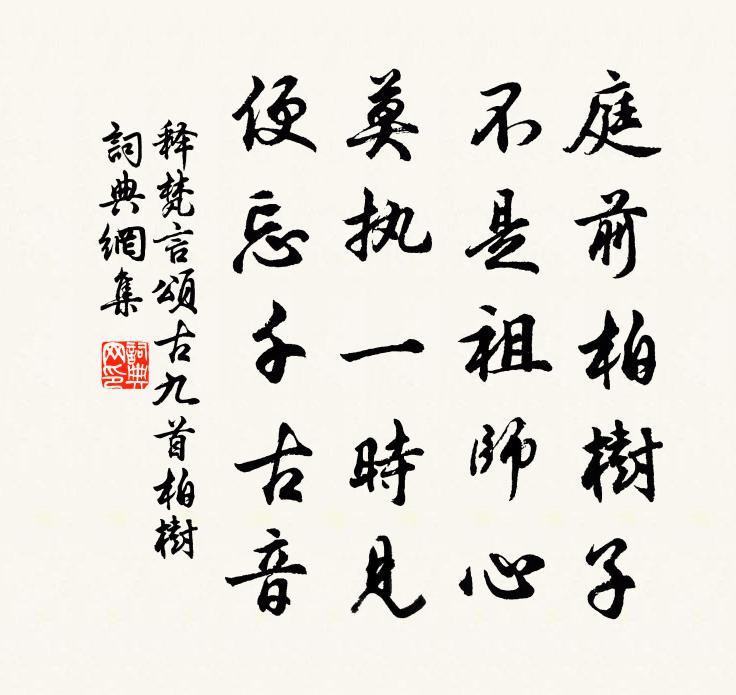 庭前柏樹子
不是祖師心
莫执一時見
便忘千古音
释梵言頌古九首柏樹
詞典網集
詞典网印